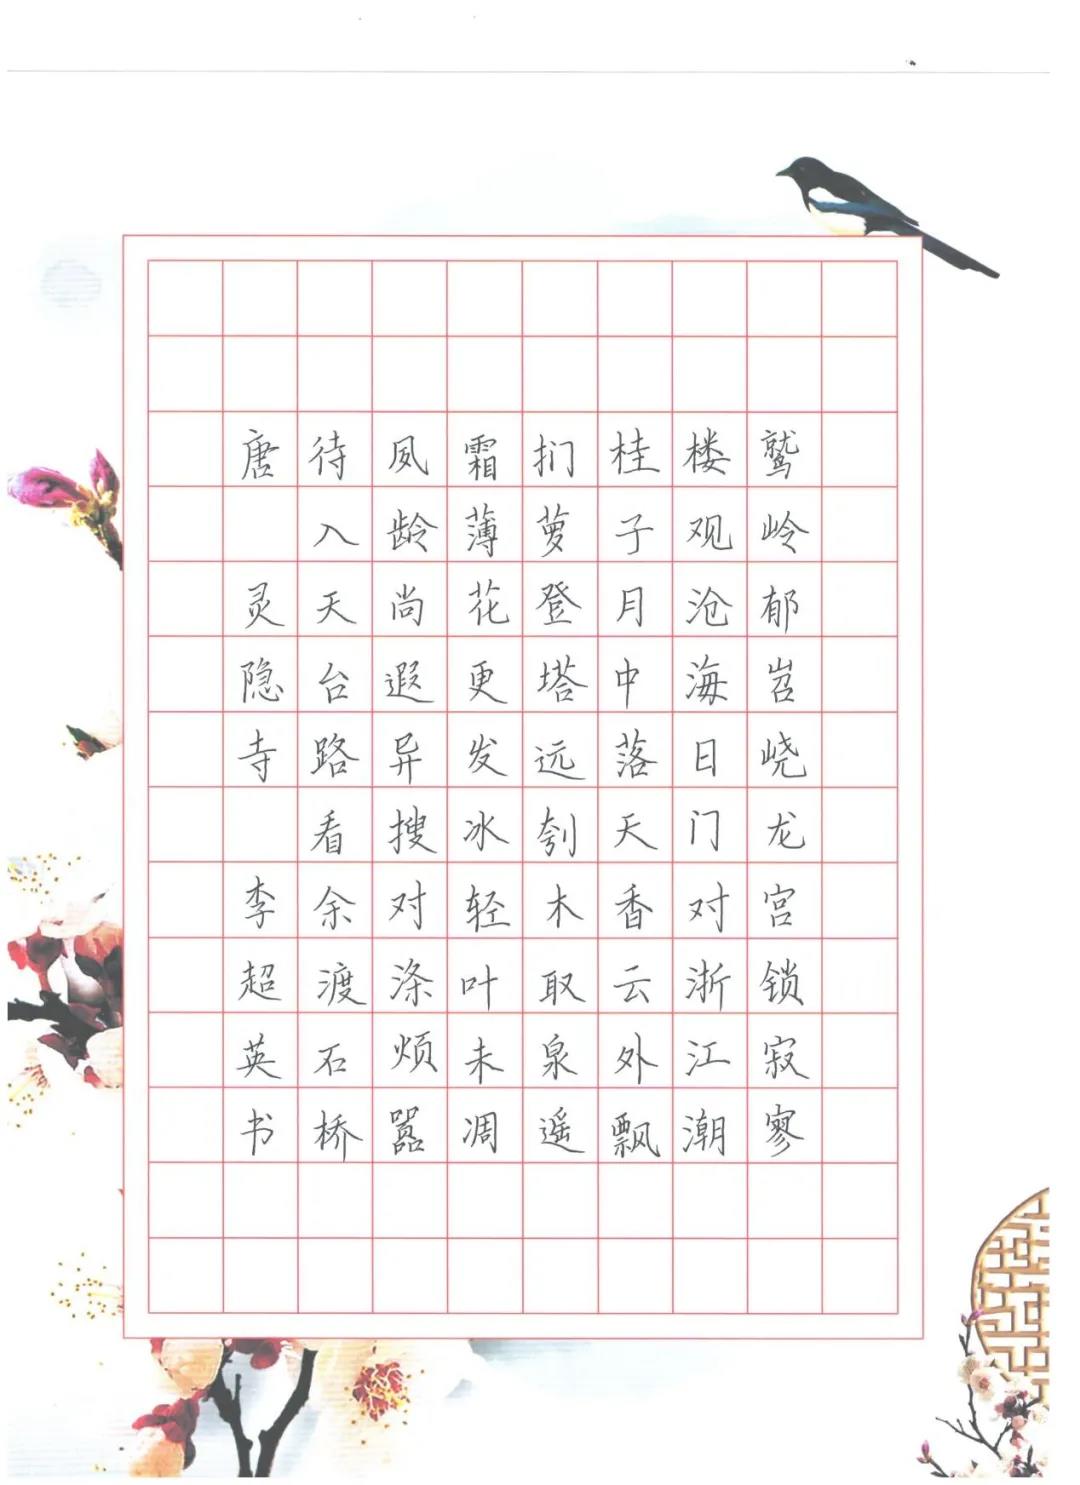 鹫岭郁岧峣龙宫锁寂寥
楼观沧海日门对浙江潮
桂子月中落天香云外飘
扪萝登塔远刳木取泉遥
霜薄花更发冰轻叶未凋
夙龄尚遐异搜对涤烦嚣
待入天台路看余渡石桥
唐 灵隐寺 李超英书